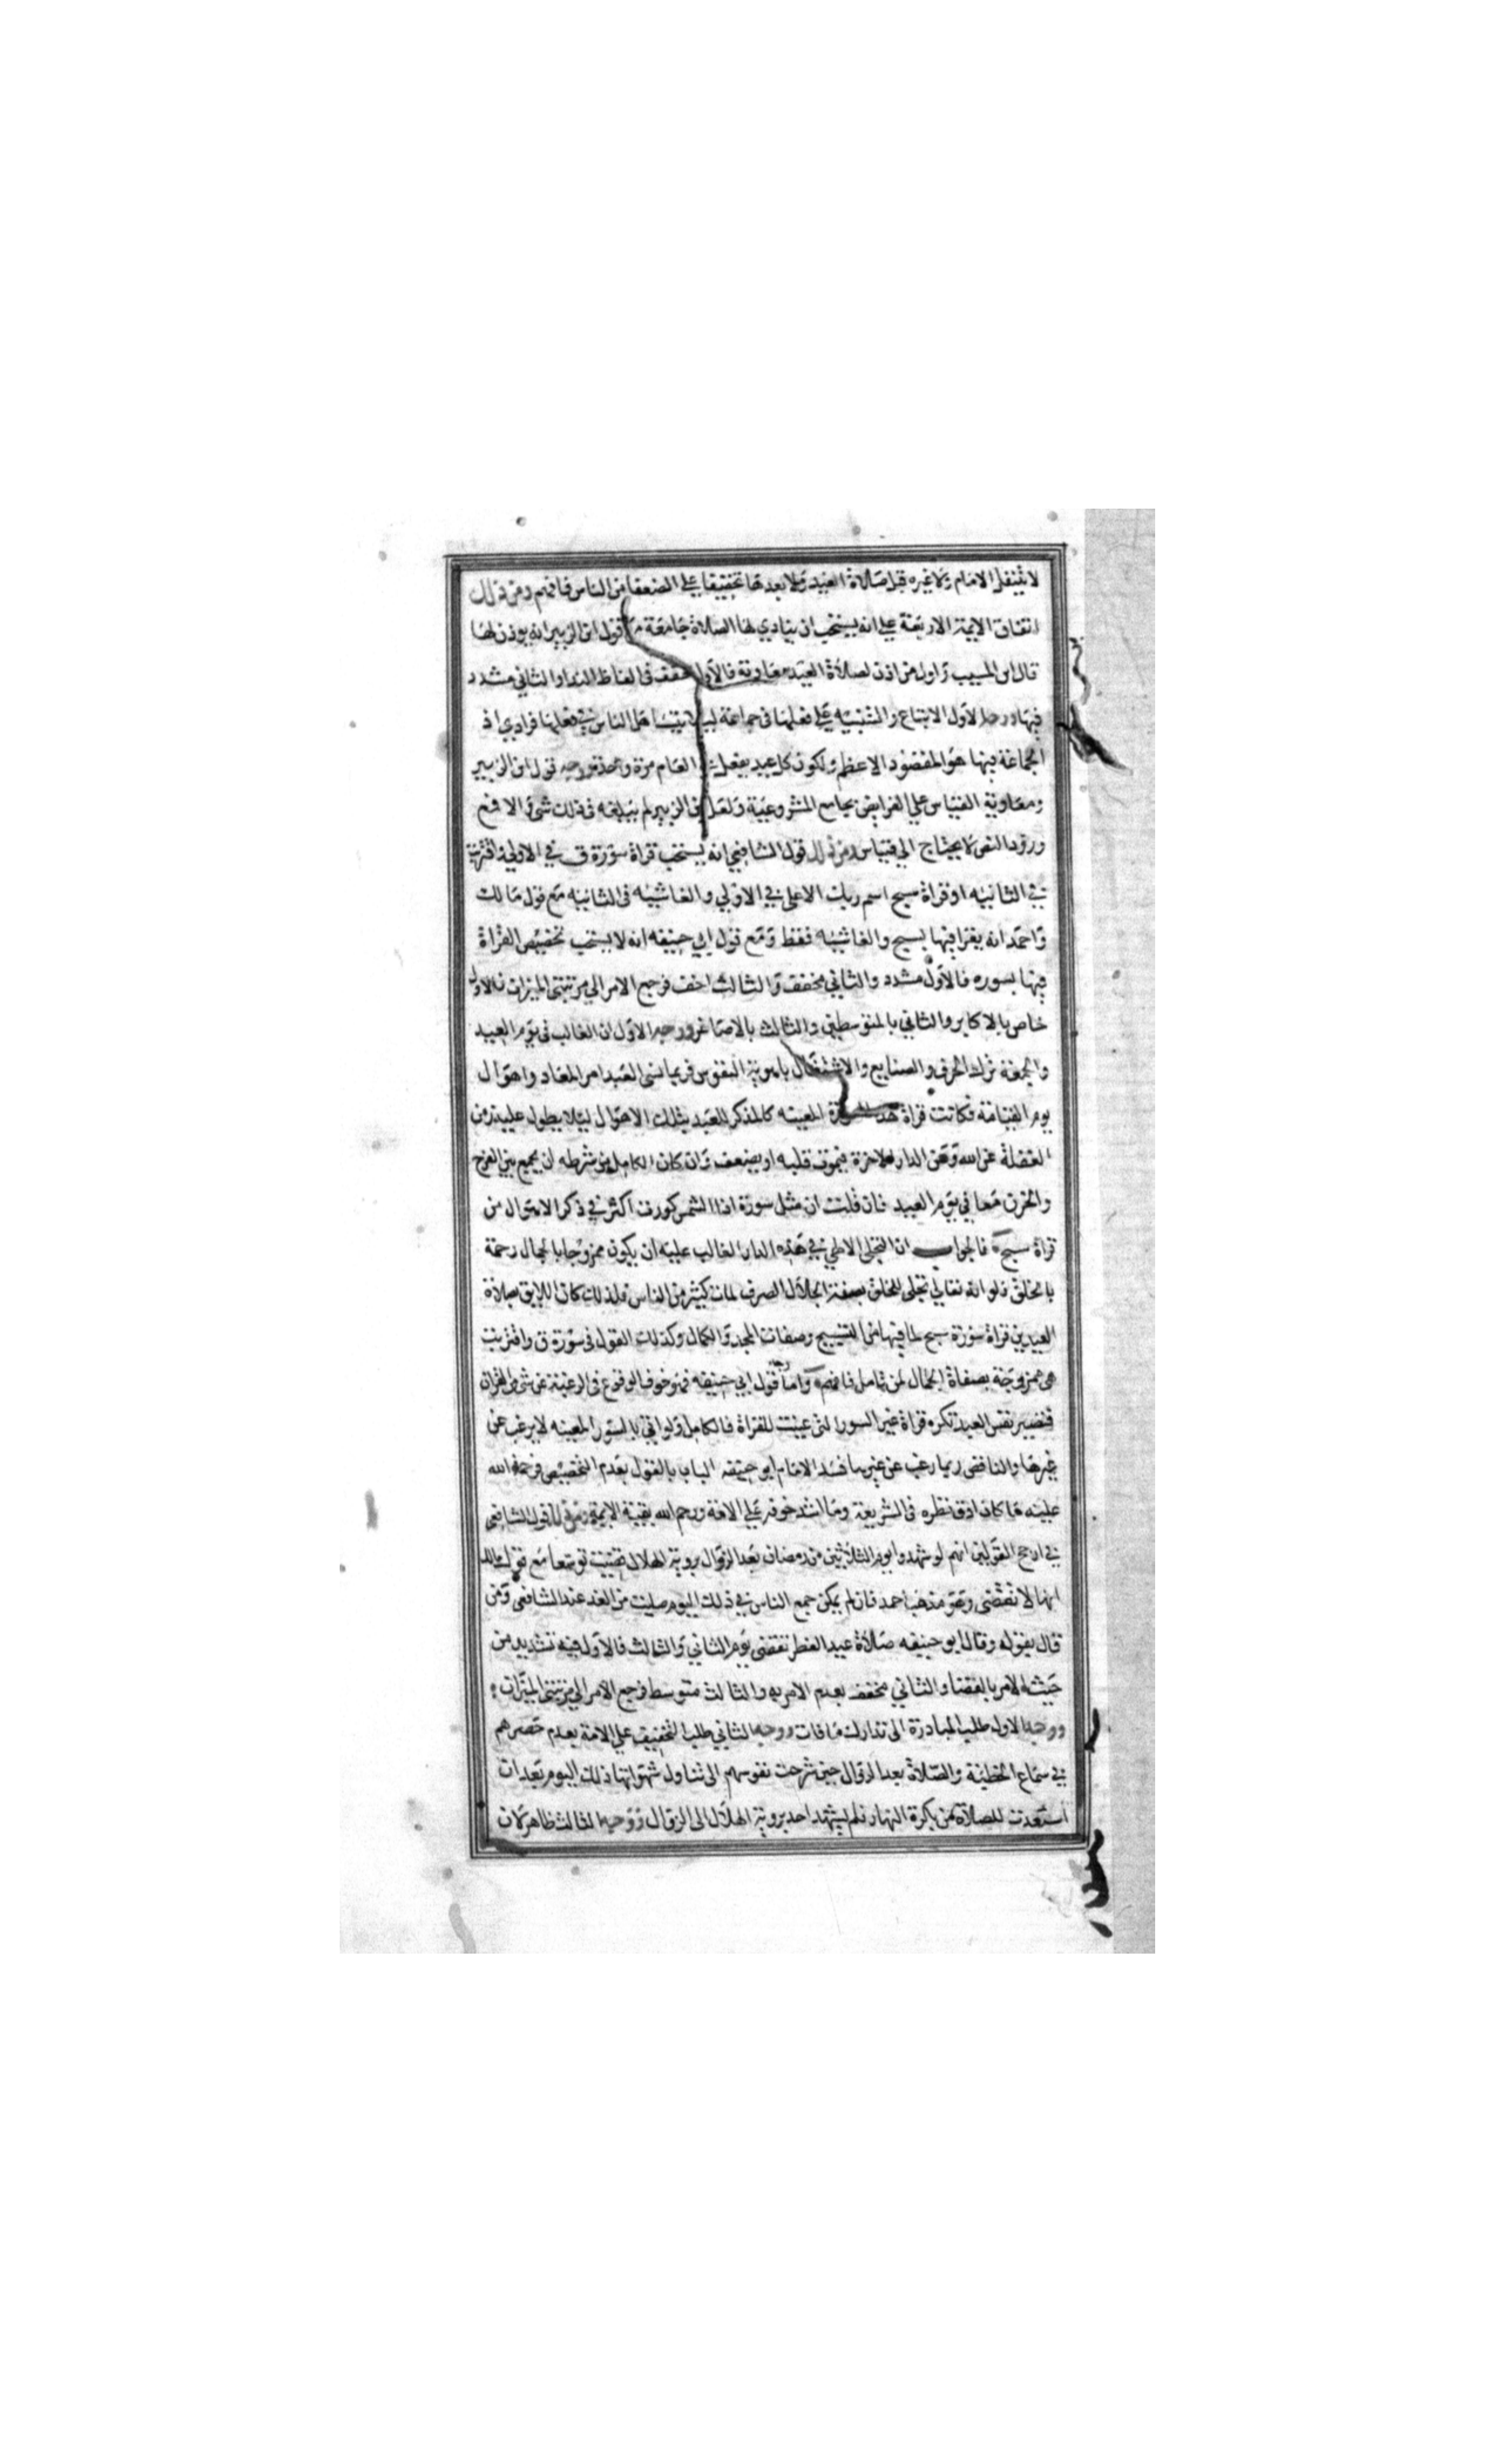 لا يتنفل الامام ولا غيره قبل صلاة العيد ولا بعدها تخفيفا على الضعفا من الناس فافهم ومن ذلك
اتفاق الايمة الاربعة على انه يستحب ان ينادي لها الصلاة جامعة مع قول ابن الزبير انه يوذن لها
قال ابن المسيب واول من اذن لصلاة العيد معاوية فالاول مخفف في الفاظ الندا والثاني مشدد
فيها ووجه الاول الاتباع والتنبيه على فعلها في جماعة ليلا يتساهل الناس في فعلها فرادي اذ
الجماعة فيها هو المقصود الاعظم ولكون كل عيد يفعل في العام مرة واحدة ووجه قول ابن الزبير
ومعاوية القياس على الفرايض بجامع المشروعية ولعل ابن الزبير لم يبلغه في ذلك شئ والا فمع
ورود النص لا يحتاج الي قياس ومن ذلك قول الشافعي انه يستحب قراة سورة ق في الاولي واقتربت
في الثانيه او قراة سبح اسم ربك الاعلى في الاولي والغاشيه في الثانيه مع قول مالك
واحمد انه يقرا فيها بسبح والغاشيه فقط ومع قول ابي حنيفه انه لا يستحب تخصيص القراة
فيها بسوره فالاول مشدد والثاني مخفف والثالث اخف فرجع الامر الي مرتبتي الميزان فالاول
خاص بالاكابر والثاني بالمتوسطين والثالث بالاصاغر ووجه الاول ان الغالب في يوم العيد
والجمعة ترك الحرف والصنايع والاشتغال بامويته النفوس فربما نسى العبد امر المعاد واهوال
يوم القيامة فكانت قراة هذه السورة المعينه كالمذكر للعبد بتلك الاهوال ليلا يطول عليه زمن
الغفلة عن الله وعن الدار الاخرة فيموت قلبه او يضعف وان كان الكامل من شرطه ان يجمع بين الفرح
والحزن معا في يوم العيد فان قلت ان مثل سورة اذا الشمس كورت اكثر في ذكر الاهوال من
قراة سبح فالجواب ان التجلى الالهي في هذه الدار الغالب عليه ان يكون ممزوجا بالجمال رحمة
بالخلق ولو الله تعالي تجلى للخلق بصفة الجلال الصرف لمات كثير من الناس فلذلك كان اللايق بصلاة
العيدين قراة سورة سبح لما فيها من التسبيح وصفات المجد والكمال وكذلك القول في سورة ق واقتربت
هى ممزوجة بصفاة الجمال لمن تامل فافهم واما وجه قول ابي حنيفه فهو خوف الوقوع في الرغبة عن شي من القران
فتصير نفس العبد تكره قراة غير السور التى عينت للقراة فالكامل ولو اتي بالسور المعينه لا يرغب عن
غيرها والناقص ربما رغب عن غيرها فسد الامام ابو حنيفه الباب بالقول بعدم التخصيص فرحمة الله
عليه ما كان ادق نظره في الشريعة وما اشد خوفه على الامة ورحم الله بقية الايمة ومن ذلك قول الشافعي
في ارجح القولين انهم لو شهدوا يوم الثلاثين من رمضان بعد الزوال بروية الهلال قضيت توسعا مع قول مالك
انها لا تقضى وهو مذهب احمد فان لم يمكن جمع الناس في ذلك اليوم صليت من الغد عند الشافعى ومن
قال بقوله وقال ابو حنيفه صلاة عيد الفطر تقضى يوم الثاني والثالث فالاول فيه تشديد من
حيث الامر بالقضا والثاني مخفف بعدم الامر به والثالث متوسط فرجع الامر الي مرتبتي الميزان
ووجه الاول طلب المبادرة الى تدارك ما فات ووجه الثاني طلب التخفيف على الامة بعدم حصرهم
في سماع الخطبة والصلاة بعد الزوال حين شرحت نفوسهم الى تناول شهواتها ذلك اليوم بعد ان
استعدت للصلاة من بكرة النهار فلم يشهد احد بروية الهلال الى الزوال ووجه الثالث ظاهر لان